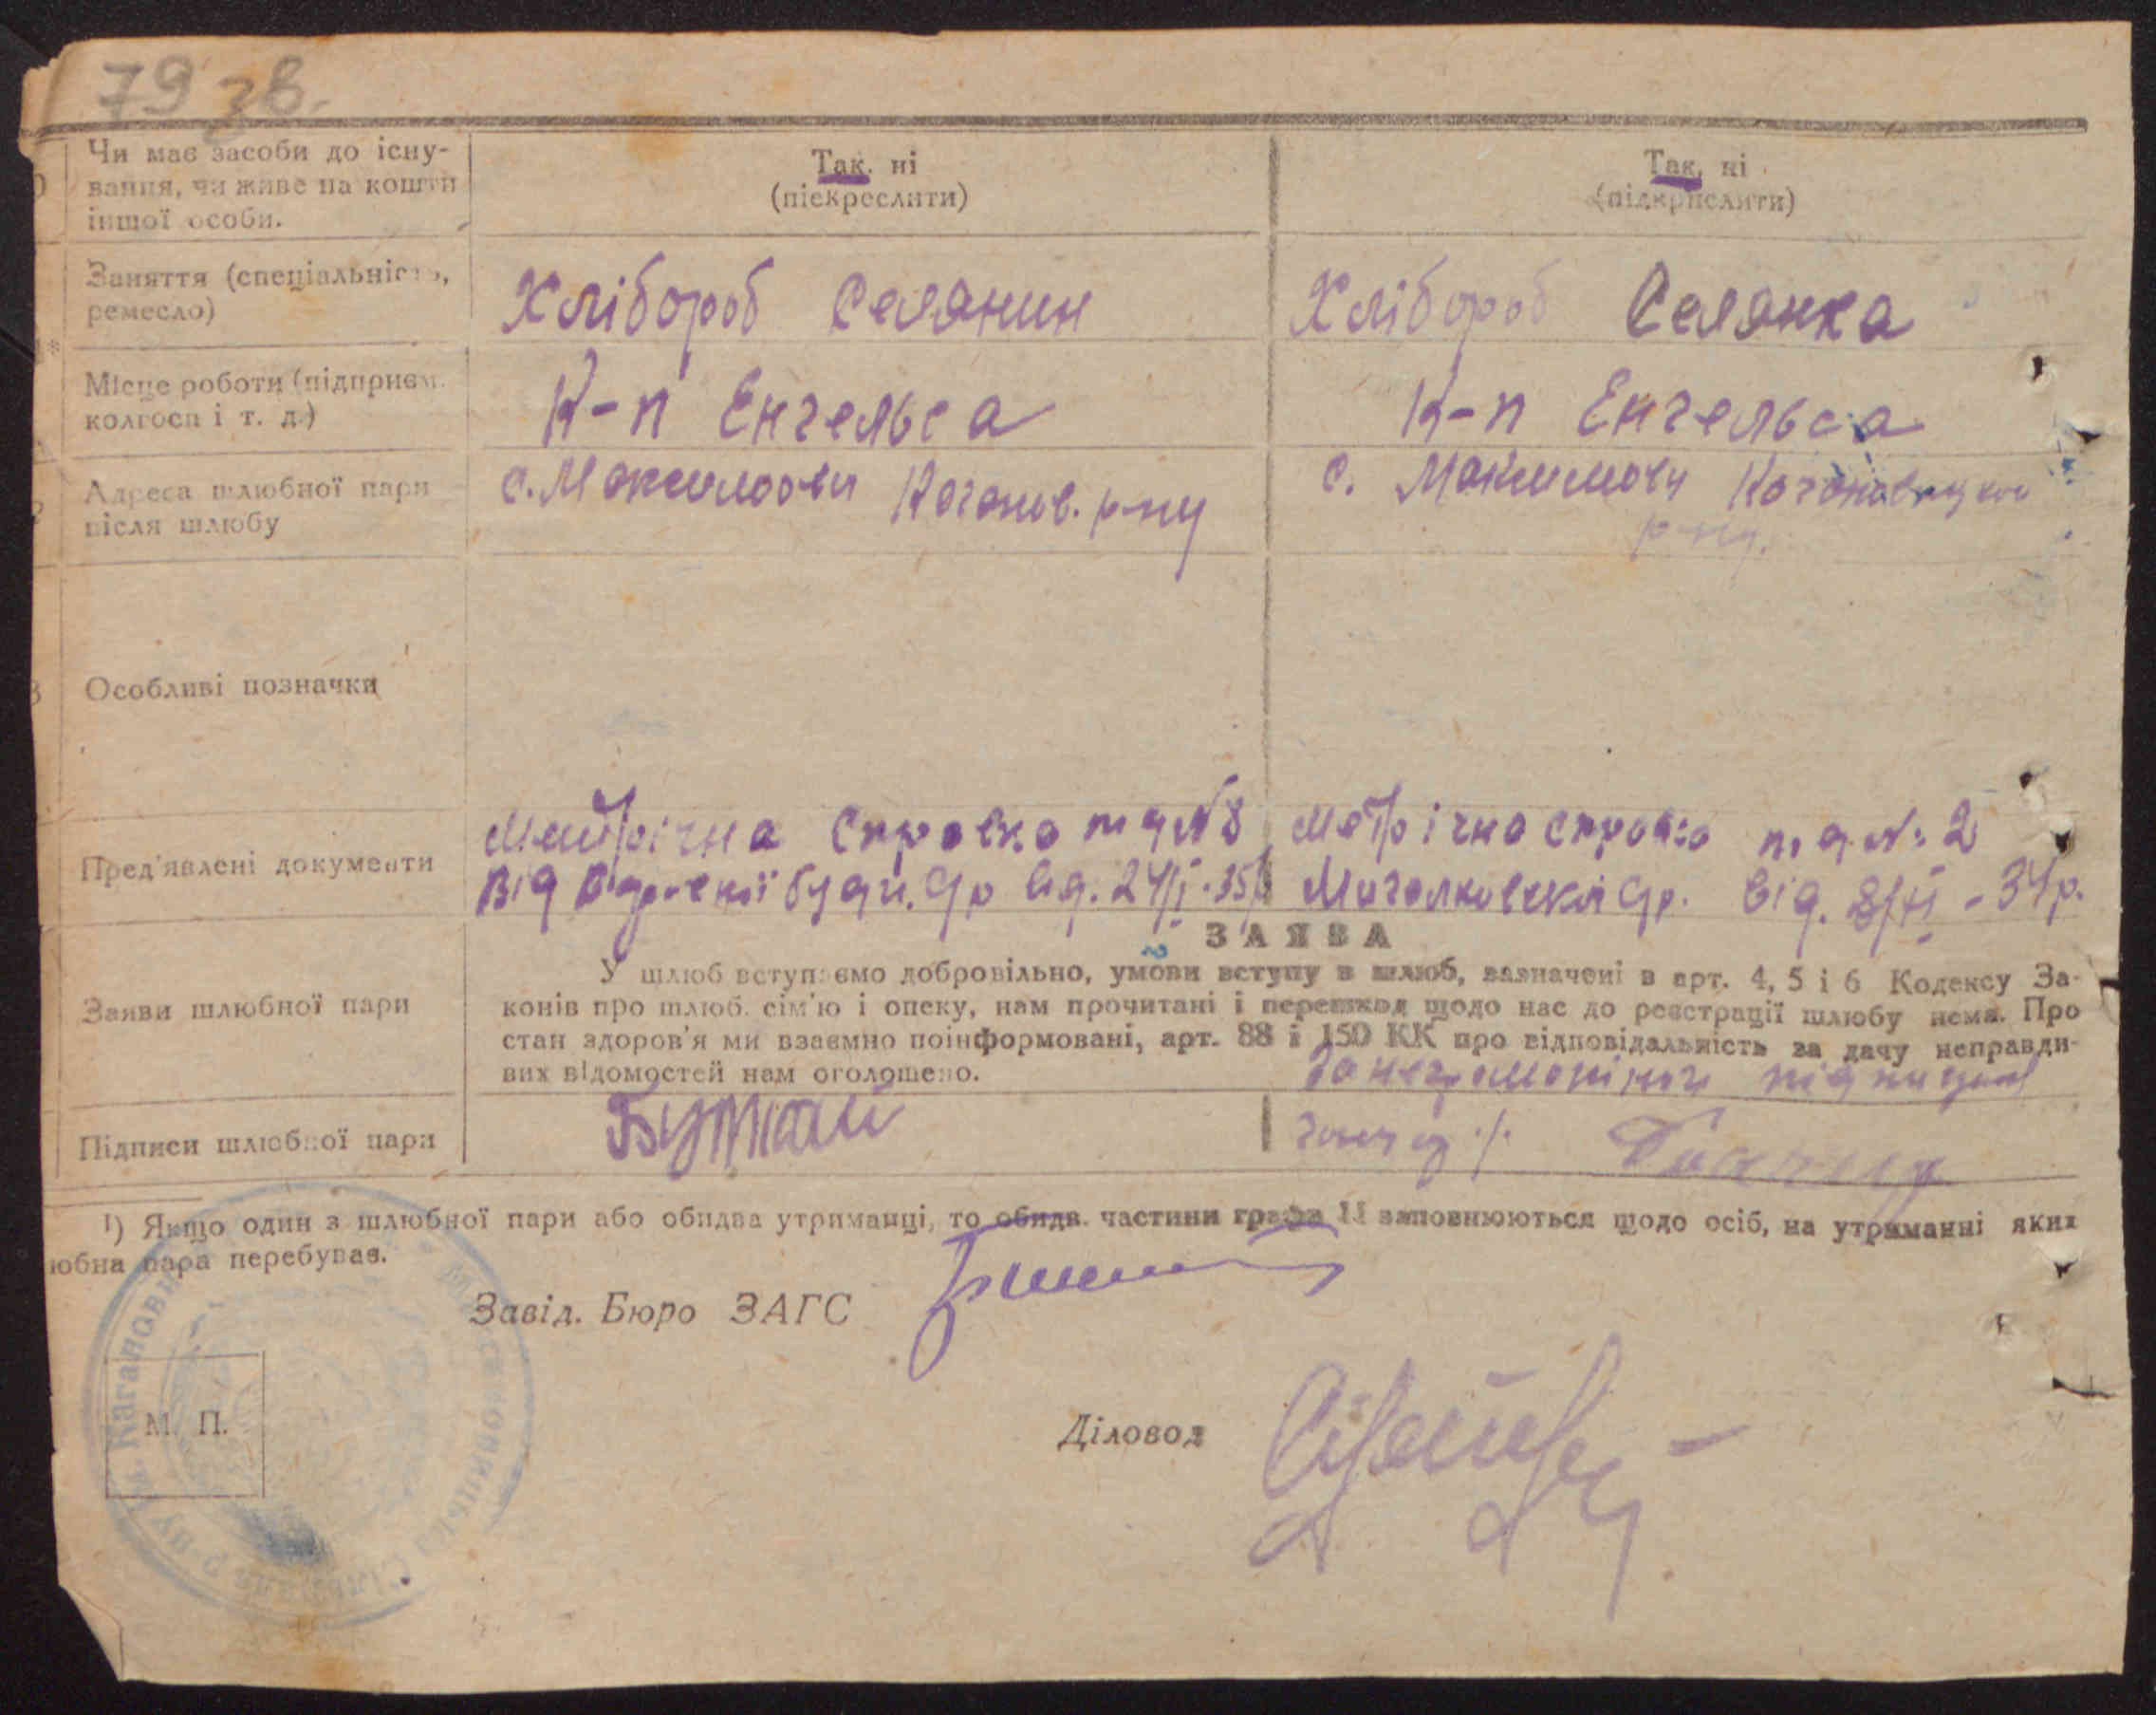 79 зв.
Чи має засоби до існу-
вання, чи живе на кошти
іншої особи.
Так, ні
(піскреслити)
Так, ні
(підкрислити)
Заняття (спеціальність,
ремесло)
Хлібороб Селянин
Хлібороб Селянка
Місце роботи (підприєм.
колгосп і т. д.)
К-п Енгельса
К-п Енгельса
Адреса шлюбної пари
після шлюбу
с. Максимови Каганов. р-ну
с. Максимови
р-ну.
Особливі позначки
Пред'явлені документи
Метрічна справка під № 8
Від Ср Від. 24/I-35р
Метрічна справка під №: 2
Ср. Від. - 34р.
ЗАЯВА
Заяви шлюбної пари
У шлюб вступаємо добровільно, умови вступу в шлюб, зазначені в арт. 4, 5 і 6 Кодексу За-
конів про шлюб. сім'ю і опеку, нам прочитані і перешкод щодо нас до реєстрації шлюбу нема. Про
стан здоров'я ми взаємно поінформовані, арт. 88 і 150 КК про відповідальність за дачу неправди-
вих відомостей нам оголошено.
Підписи шлюбної пари
Буткай
1) Якщо один з шлюбної пари або обидва утриманці, то обидв. частини графи 11 заповнюються щодо осіб, на утриманні яких
юбна пара перебуває.
Завід. Бюро ЗАГС
М. П.
Діловод